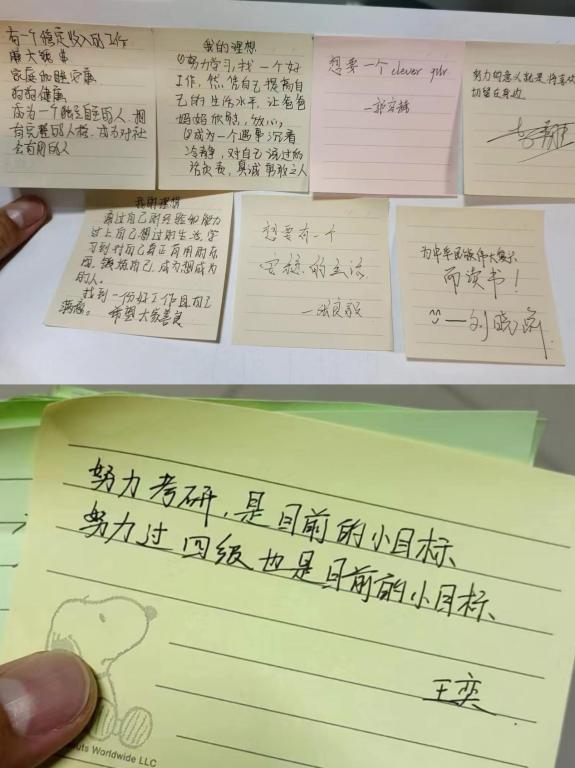 有一个稳定收入的工作
赚大钱
家庭和睦安康
成为一个独立自主的人、拥
有完整的人格、成为对社
会有用的人
我的理想
①努力学习,找一个好
工作,然后自己提高自
己的生活水平,让爸爸
妈妈欣慰,放心。
②成为一个遇事沉着
冷静,对自己说过的
话负责,真诚勇敢之人
想要一个clever
努力的意义就是将喜欢
切留在身边
我的理想
通过自己的经验和能力
过上自己想过的生活,学
习到对自己真正有用的东
西,锻炼自己,成为想成为
的人。
找到一份好工作且自己
满意。 希望大家善良
想要有一个
安稳的生活
为中华民族伟大复兴
而读书!
努力考研,是目前的小目标、
努力过四级也是目前的小目标、
王奕
Peanuts Worldwide LLC